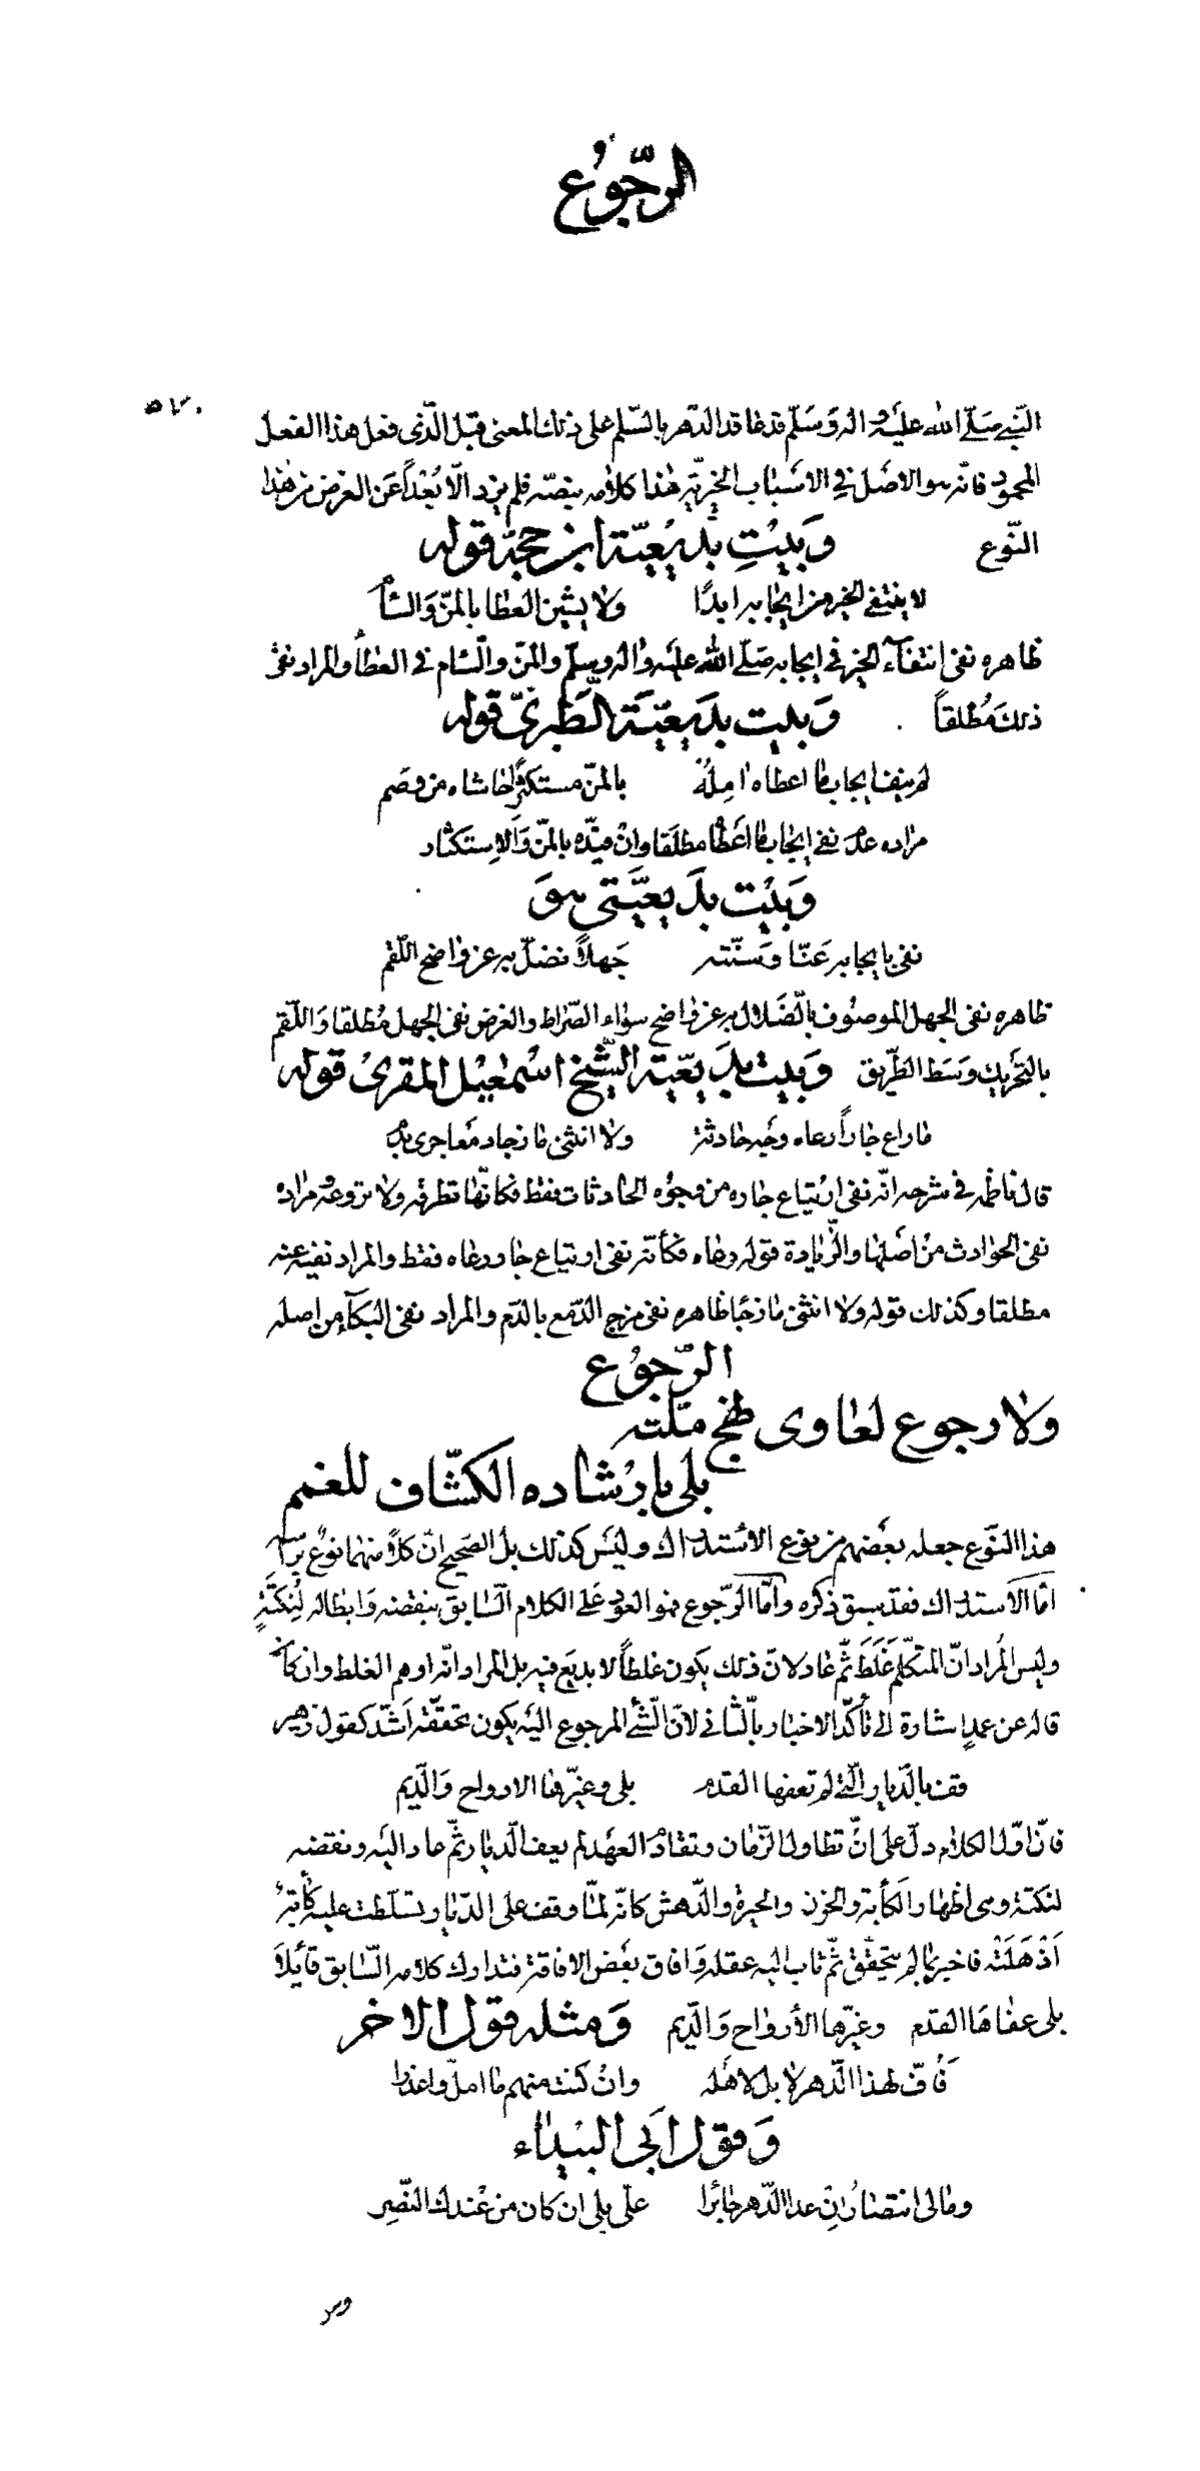 الرّجوُع
٥٧٠
النّبي صَلّى الله عليَه واله وَسَلّم قد عاقد الدّهر بالسّلم على ذلك المعنى قبل الّذى فعل هذا الفعل
المحمود فانّه هو الاصَل في الاسَباب الخيريّه هذا كلامه بنصّه فلم يزد الّا بُعْداً عَن الغرض من هذا
النّوع وَبيْتِ بَديْعيّة ابن حجّة قوله
لا ينتفى الخير من ايجابه ابدًا ولا يشين العطا بالمنّ وَالسأم
ظاهره نفى انتفآء الخير فى ايجابه صَلّى الله عليه واله وسلّم والمنّ والسّام فى العطأ والمراد نفى
ذلك مُطلقاً وَبيت بدَيعيّة الطَبريّ قوله
لم ينف ايجاب ما اعطاه امِلُهُ بالمنّ مستكثراً حاشاه من وصَم
مراده عدم نفى ايجاب ما اعَطا مطلقا وانْ قيّده بالمنّ وَالاِستكثار
وَبيْت بدَيعيَّتى هوَ
نفى بايجابه عَنّا وسَنّته جَهلاً نضلّ به عن واضح اللّقم
ظاهره نفى الجهل الموصوُف بالضَلال به عن واضح سواء الصّراط والغرض نفى الجهل مُطلقا وَاللّقم
بالتّحَريك وَسَط الطّريق وَبيت بدَيعيّة الشّيخ اسَمعيْل المقرىُ قوله
ما راع جاراً رعاه وجَه حادثة ولا انثنى مازجا دمَعا جرى بدم
قال ناظمه فى شرحه انّه نفى ارتياع جاره من وجوُه الحادثات فقط فكانّها تطرقه ولا تروعهْ مراده
نفى الحوادث منْ اصَلها والزّيادة قوله رعاه فكأنه نفى ارتياع جار رعاه فقط والمراد نفيه عنه
مطلقا وكذلك قوله ولا انثنى مازجًا ظاهره نفى مزج الدّمع بالدّم والمراد نفى البكآء من اصله
الرّجوُع
ولا رجوع لغاوى نهج ملّته
بلى بارْشاده الكشّاف للغمم
هذا النّوع جعله بعَضهم من نوع الاسْتدراك وليَس كذلك بل الصَحيح انّ كلاًّ منهما نوعُ براسه
امّا الاستدراك فقد سبق ذكره وامّا الرّجوع فهو العود عَلى الكلام السّابق بنقضه وَابطاله لِنكتَةٍ
وليس المُراد انّ المتكلّم غَلَطَ ثمّ عاد لانّ ذلك يكون غلطاً لا بديَع فيه بل المراد انّه اوهم الغلط وان كان
قاله عن عمدٍ اشارة الى تأكّد الاخبار بالثّانى لانّ الشّئ المرجوع اليَه يكون تحققّه اشَدّ كقول زهير
قف بالدّيار الّتى لم تعفها القدم بلى وغيّرها الارواح وَالدّيم
فانّ اوّل الكلام دلّ على انَّ تطاول الزّمان وتقادُم العهَد لم يعف الدّيار ثمّ عاد اليَه ونقضه
لنكتة وهى اظهار الكأبة والحزن والحيرة والدّهش كانّه لمّا وقف على الدّيار وتسلّطت عليه كأبةُ
اَذْهَلَتْه فاخبر بما لم يتحقّق ثمّ ثاب اليه عقله وَافاق بعَض الافاقة فتدارك كلامه السّابق قآئِلاً
بلى عفاهَا القدم وغيّرها الأرواح وَالدّيم وَمثله قول الاخر
فَأُفّ لهذا الدّهر لا بل لاهَله وانْ كنت منهم ما امَلّ واعذرا
وَقول اَبى البيْداء
ومالى انتصارُ انِ غدا الدّهر جائرًا علّى بلى ان كان من عنْدك النّصَر
ومر